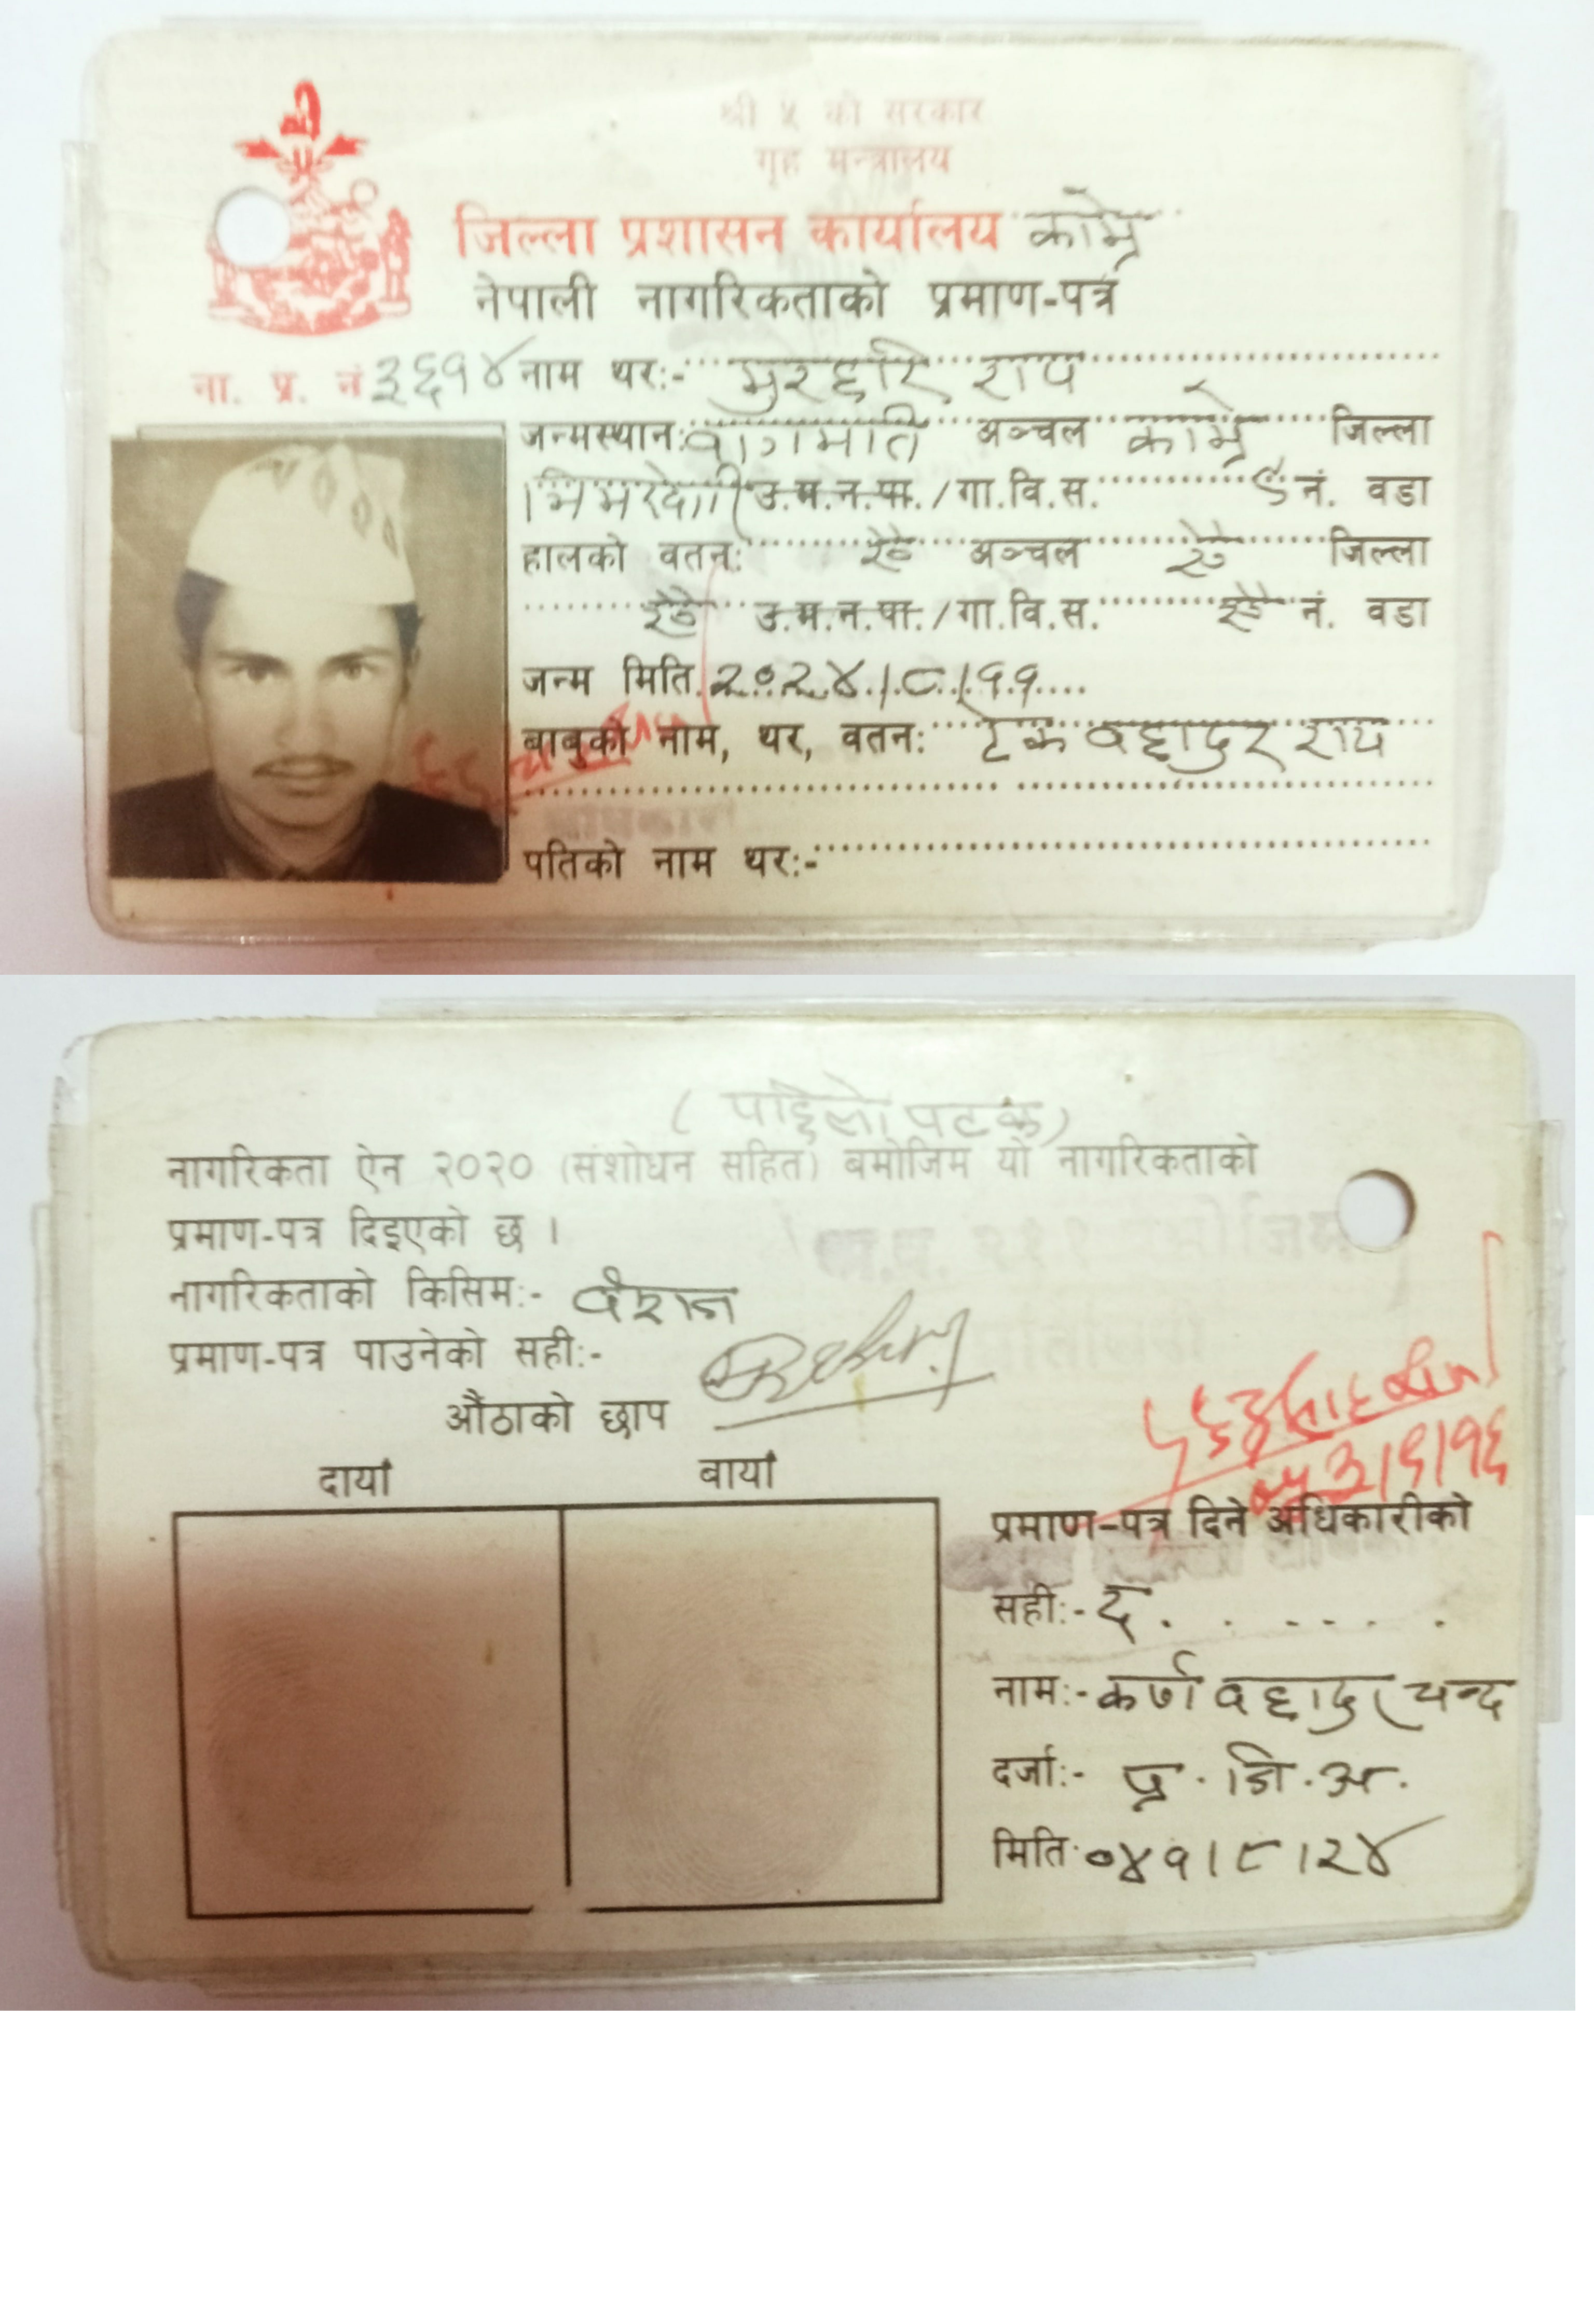 श्री ५ को सरकार
गृह मन्त्रालय
जिल्ला प्रशासन कार्यालय काभ्रे
नेपाली नागरिकताको प्रमाण-पत्र
ना. प्र. नं ३६१४ नाम थर:- मुरहरि राय
जन्मस्थान: वागमति अञ्चल काभ्रे जिल्ला
उ.म.न.पा./गा.वि.स. ९ नं. वडा
हालको वतन: ऐऐ अञ्चल ऐऐ जिल्ला
ऐऐ उ.म.न.पा./गा.वि.स. ऐऐ नं. वडा
जन्म मिति २०२४।८।११
बाबुको नाम, थर, वतन: टेक वहादुर राय
पतिको नाम थर:-
(पहिलो पटक)
नागरिकता ऐन २०२० (संशोधन सहित) बमोजिम यो नागरिकताको
प्रमाण-पत्र दिइएको छ ।
नागरिकताको किसिम:- वंशज
प्रमाण-पत्र पाउनेको सही:-
औंठाको छाप
दायाँ बायाँ
प्रमाण-पत्र दिने अधिकारीको
सही:- द.
नाम:- कर्ण वहादुर चन्द
दर्जा:- प्र. जि. अ.
मिति ०४१।८।२४